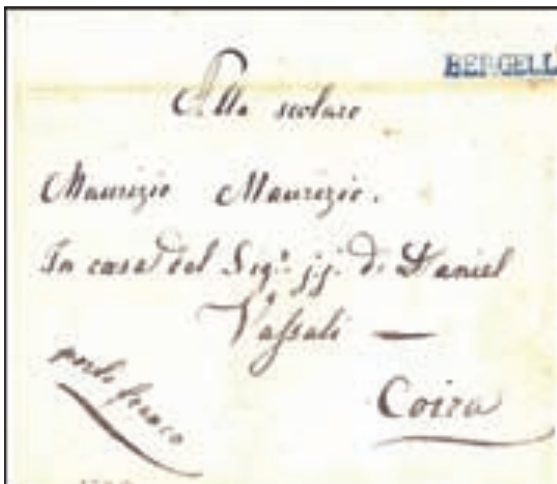 BERGELL
Allo scolaro
Maurizio Maurizio.
In casa del Sigr. j. j. di Daniel
Vassali —
Coira
porto franco